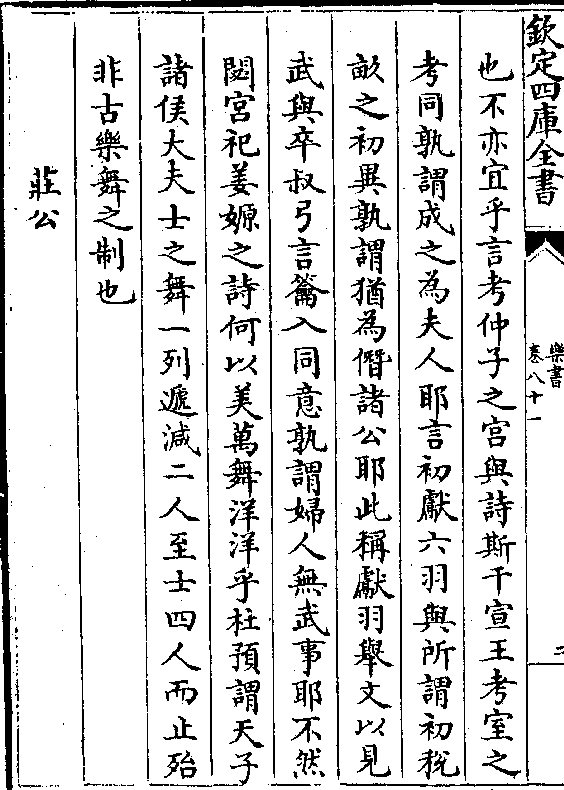 欽定四庫全書
樂書
卷八十一
二
也不亦宜乎言考仲子之宮與詩斯干宣王考室之
考同孰謂成之為夫人耶言初獻六羽與所謂初稅
畝之初異孰謂猶為僭諸公耶此稱獻羽舉文以見
武與卒叔弓言籥入同意孰謂婦人無武事耶不然
閟宮祀姜嫄之詩何以美萬舞洋洋乎杜預謂天子
諸侯大夫士之舞一列遞減二人至士四人而止殆
非古樂舞之制也
莊公